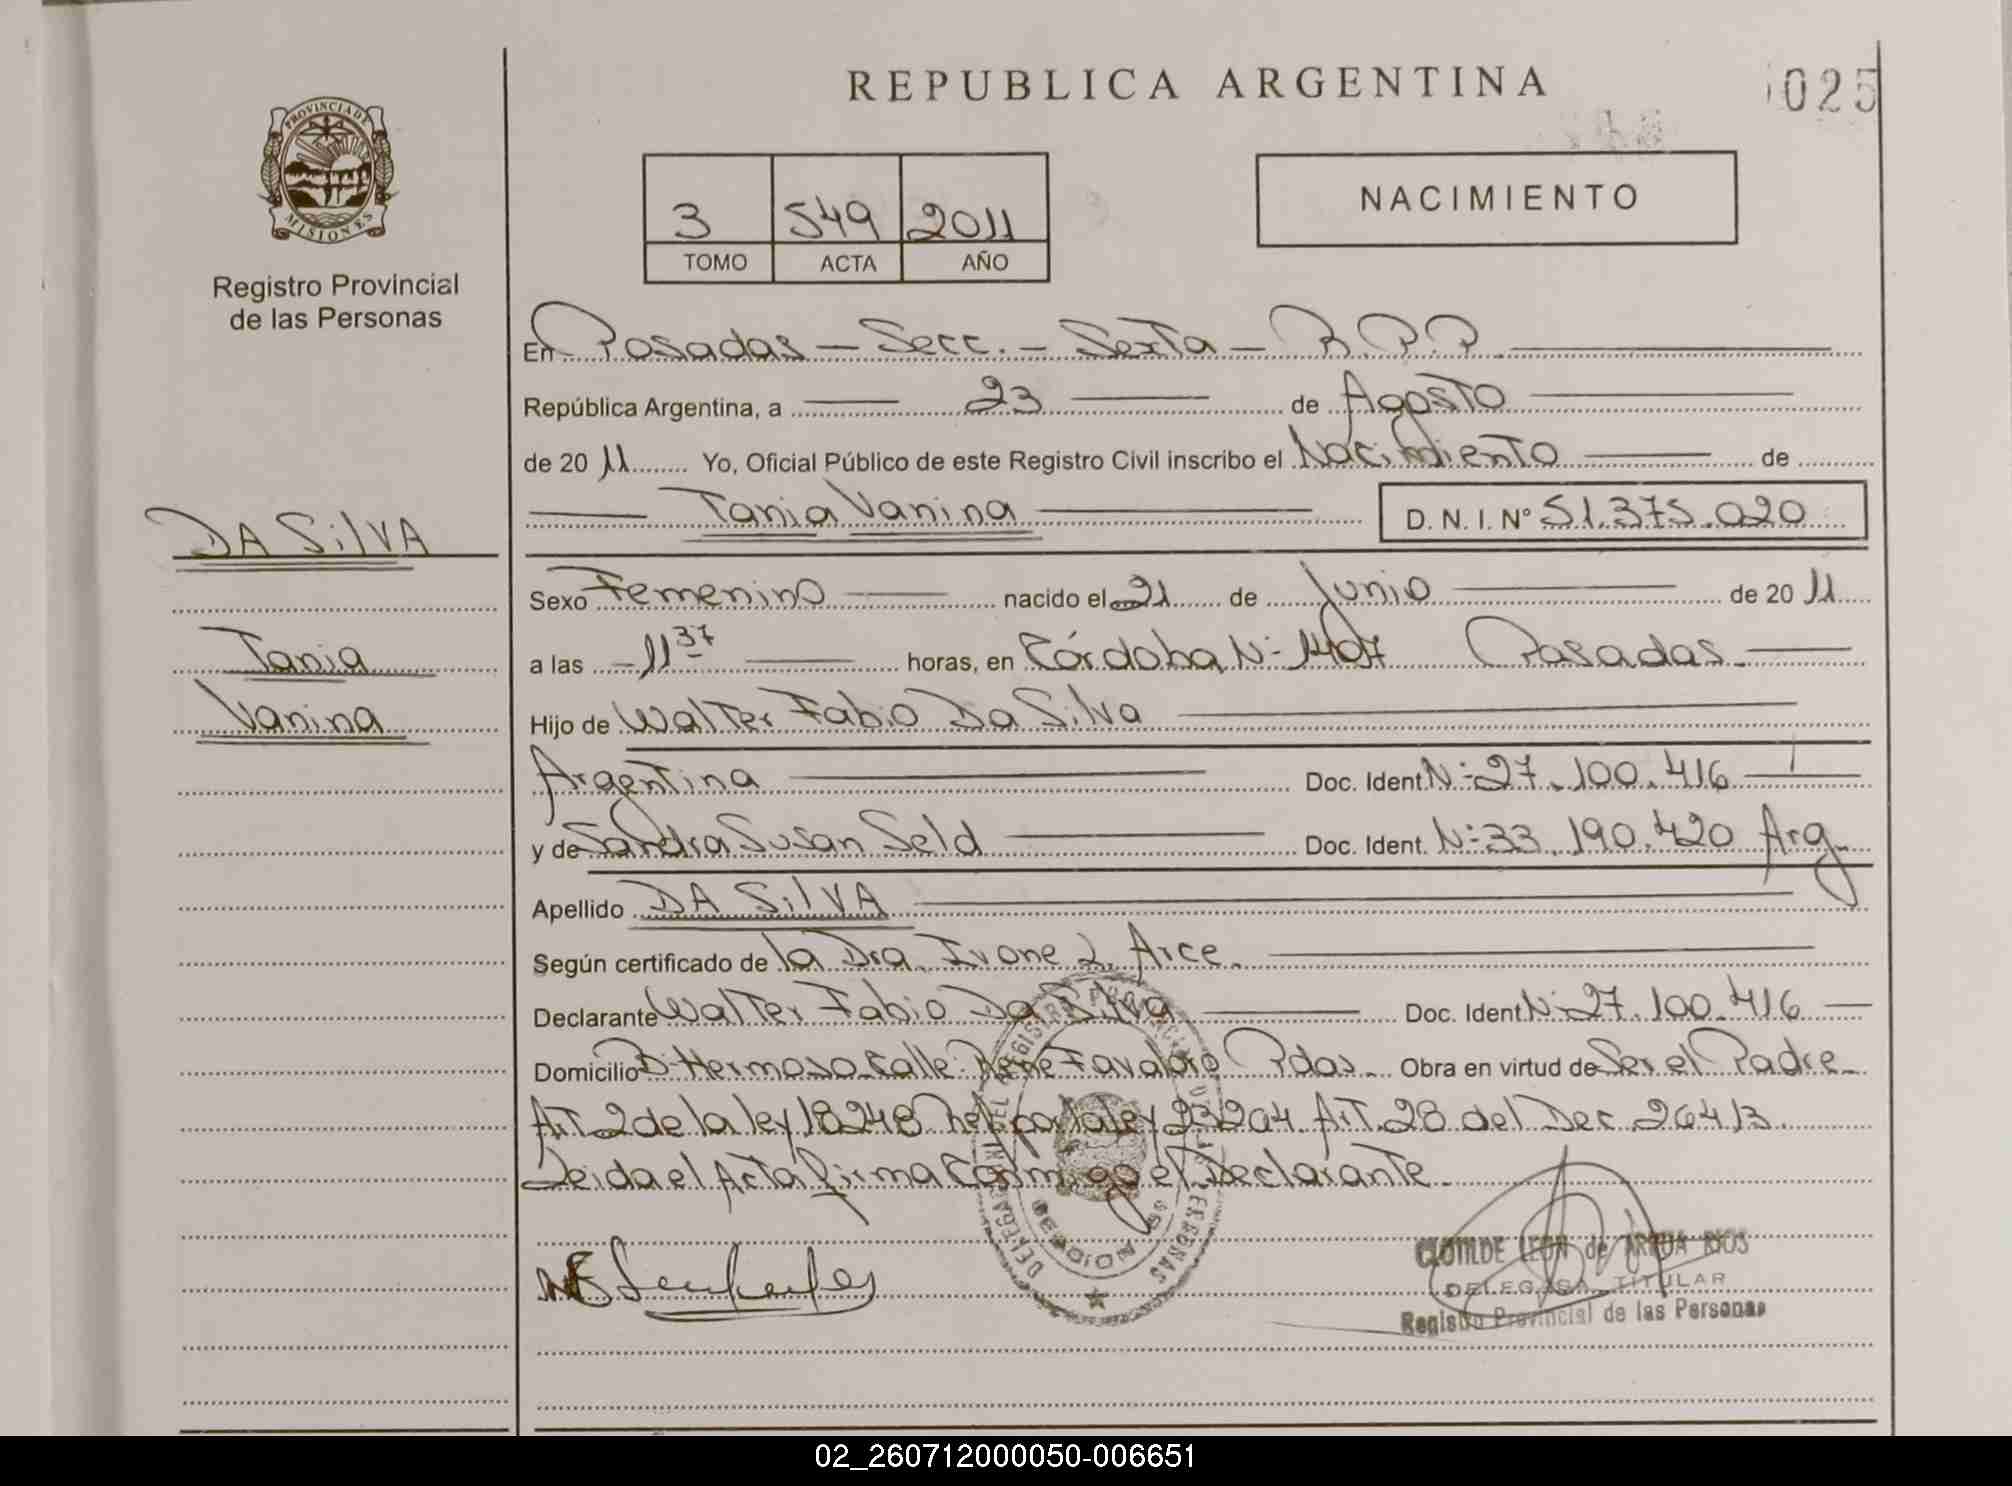 REPUBLICA ARGENTINA
025
PROVINCIA DE
MISIONES
Registro Provincial
de las Personas
3 549 2011
TOMO ACTA AÑO
NACIMIENTO
En Posadas - Secc. - Sexta - R.P.P.
República Argentina, a 23 de Agosto
de 20 11 Yo, Oficial Público de este Registro Civil inscribo el Nacimiento de
Tania Vanina D. N. I. N° 51.375.020
DA SilVA
Tania
Vanina
Sexo Femenino nacido el 21 de Junio de 20 11
a las - 11 37 horas, en Córdoba N: 1407 Posadas.
Hijo de Walter Fabio Da Silva
Argentina Doc. Ident. N: 27.100.416
y de Sandra Susan Seld Doc. Ident. N: 33.190.420 Arg.
Apellido DA SilVA
Según certificado de la Dra. Ivone L. Arce.
Declarante Walter Fabio Da Silva Doc. Ident. N: 27.100.416
Domicilio B: Hermoso Calle: Rene Favaloro Pdas. Obra en virtud de Ser el Padre
Art. 2 de la ley 18248 Ref. por la ley 23204 Art. 28 del Dec. 264/3
Leida el Acta firma Conmigo el Declarante.
CLOTILDE LEON de ARRUA RIOS
DELEGADA TITULAR
Registro Provincial de las Personas
02_260712000050-006651